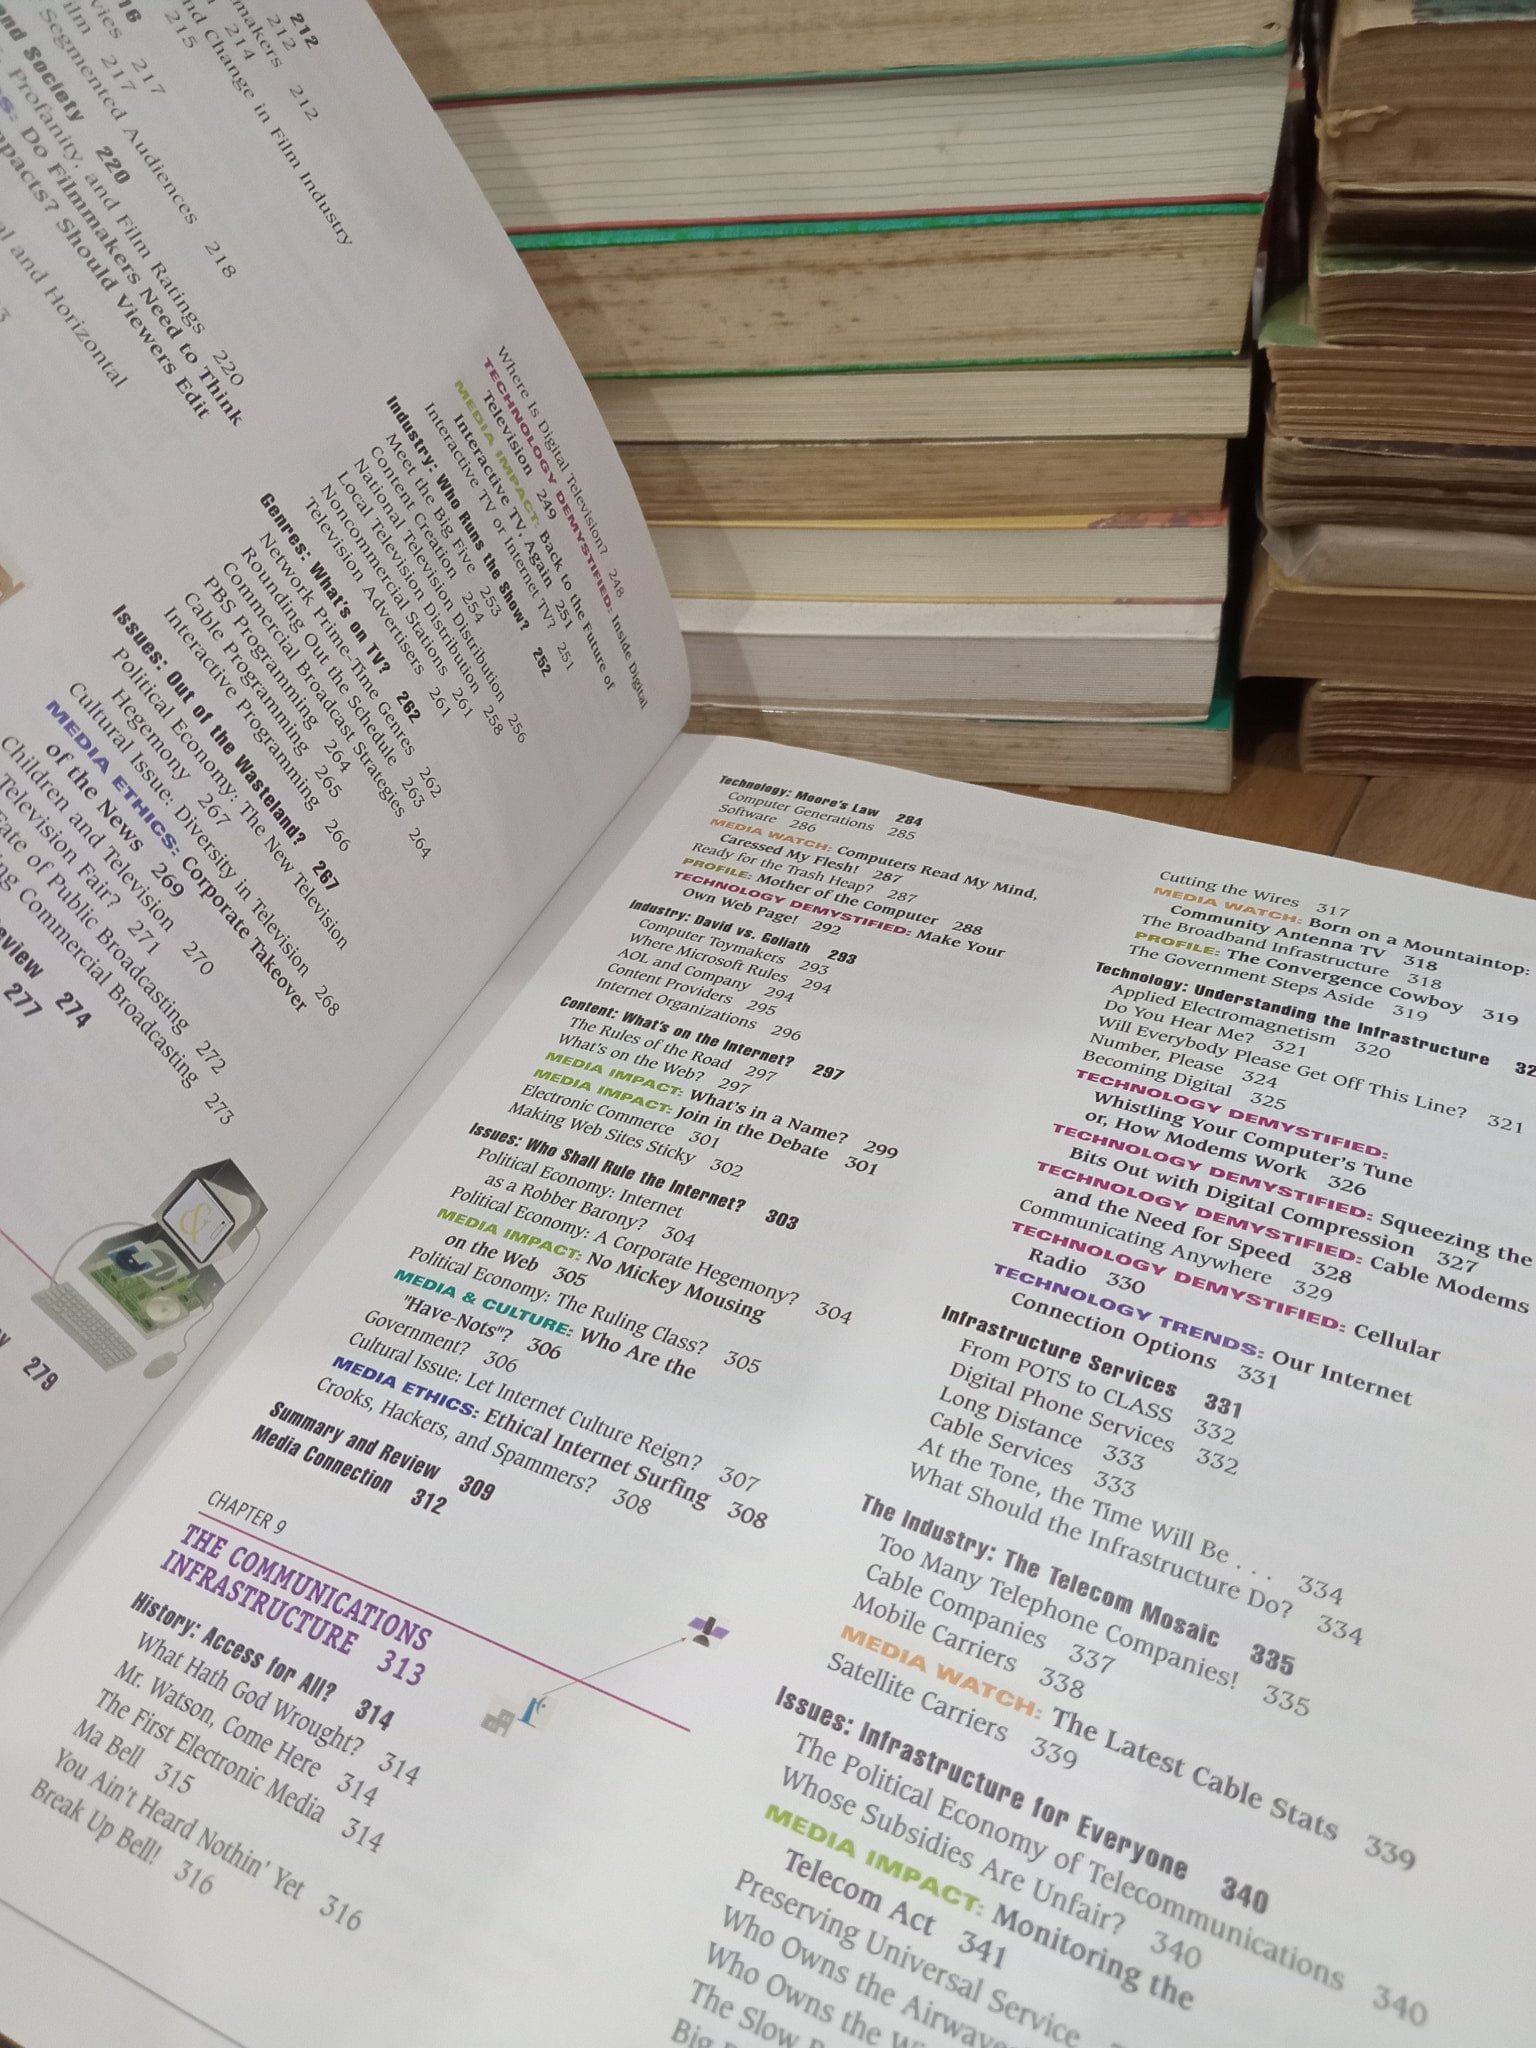 212
212
makers 212
214
Change in Film Industry
215
16
217
217
Segmented Audiences 218
and Society 220
Profanity, and Film Ratings 220
Do Filmmakers Need to Think
Should Viewers Edit
and Horizontal
Where Is Digital Television? 248
TECHNOLOGY DEMYSTIFIED: Inside Digital
Television 249
MEDIA IMPACT: Back to the Future of
Interactive TV, Again 251
Interactive TV or Internet TV? 251
Industry: Who Runs the Show? 252
Meet the Big Five 253
Content Creation 254
National Television Distribution 256
Local Television Distribution 258
Noncommercial Stations 261
Television Advertisers 261
Genres: What's on TV? 262
Network Prime-Time Genres 262
Rounding Out the Schedule 263
Commercial Broadcast Strategies 264
PBS Programming 264
Cable Programming 265
Interactive Programming 266
Issues: Out of the Wasteland? 267
Political Economy: The New Television
Hegemony 267
Cultural Issue: Diversity in Television 268
MEDIA ETHICS: Corporate Takeover
of the News 269
Children and Television 270
Television Fair? 271
Fate of Public Broadcasting 272
Commercial Broadcasting 273
274
277
279
Technology: Moore's Law 284
Computer Generations 285
Software 286
MEDIA WATCH: Computers Read My Mind,
Caressed My Flesh! 287
Ready for the Trash Heap? 287
PROFILE: Mother of the Computer 288
TECHNOLOGY DEMYSTIFIED: Make Your
Own Web Page! 292
Industry: David vs. Goliath 293
Computer Toymakers 293
Where Microsoft Rules 294
AOL and Company 294
Content Providers 295
Internet Organizations 296
Content: What's on the Internet? 297
The Rules of the Road 297
What's on the Web? 297
MEDIA IMPACT: What's in a Name? 299
MEDIA IMPACT: Join in the Debate 301
Electronic Commerce 301
Making Web Sites Sticky 302
Issues: Who Shall Rule the Internet? 303
Political Economy: Internet
as a Robber Barony? 304
Political Economy: A Corporate Hegemony? 304
MEDIA IMPACT: No Mickey Mousing
on the Web 305
Political Economy: The Ruling Class? 305
MEDIA & CULTURE: Who Are the
"Have-Nots"? 306
Government? 306
Cultural Issue: Let Internet Culture Reign? 307
MEDIA ETHICS: Ethical Internet Surfing 308
Crooks, Hackers, and Spammers? 308
Summary and Review 309
Media Connection 312
CHAPTER 9
THE COMMUNICATIONS
INFRASTRUCTURE 313
History: Access for All? 314
What Hath God Wrought? 314
Mr. Watson, Come Here 314
The First Electronic Media 314
Ma Bell 315
You Ain't Heard Nothin' Yet 316
Break Up Bell! 316
Cutting the Wires 317
MEDIA WATCH: Born on a Mountaintop:
Community Antenna TV 318
The Broadband Infrastructure 318
PROFILE: The Convergence Cowboy 319
The Government Steps Aside 319
Technology: Understanding the Infrastructure 32
Applied Electromagnetism 320
Do You Hear Me? 321
Will Everybody Please Get Off This Line? 321
Number, Please 324
Becoming Digital 325
TECHNOLOGY DEMYSTIFIED:
Whistling Your Computer's Tune
or, How Modems Work 326
TECHNOLOGY DEMYSTIFIED: Squeezing the
Bits Out with Digital Compression 327
TECHNOLOGY DEMYSTIFIED: Cable Modems
and the Need for Speed 328
Communicating Anywhere 329
TECHNOLOGY DEMYSTIFIED: Cellular
Radio 330
TECHNOLOGY TRENDS: Our Internet
Connection Options 331
Infrastructure Services 331
From POTS to CLASS 332
Digital Phone Services 332
Long Distance 333
Cable Services 333
At the Tone, the Time Will Be . . . 334
What Should the Infrastructure Do? 334
The Industry: The Telecom Mosaic 335
Too Many Telephone Companies! 335
Cable Companies 337
Mobile Carriers 338
MEDIA WATCH: The Latest Cable Stats 339
Satellite Carriers 339
Issues: Infrastructure for Everyone 340
The Political Economy of Telecommunications 340
Whose Subsidies Are Unfair? 340
MEDIA IMPACT: Monitoring the
Telecom Act 341
Preserving Universal Service
Who Owns the Airwaves
Who Owns the
The Slow
Big